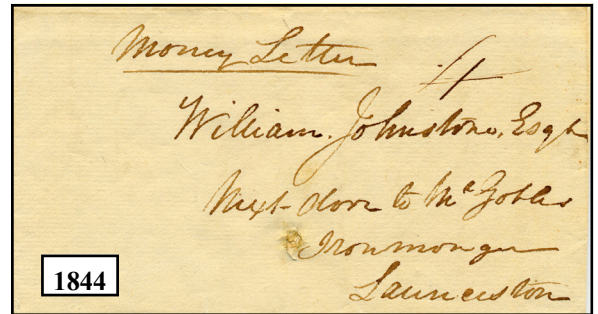 Money Letter
4
William Johnstone, Esqr
Next door to Mr
Ironmonger
Launceston
1844